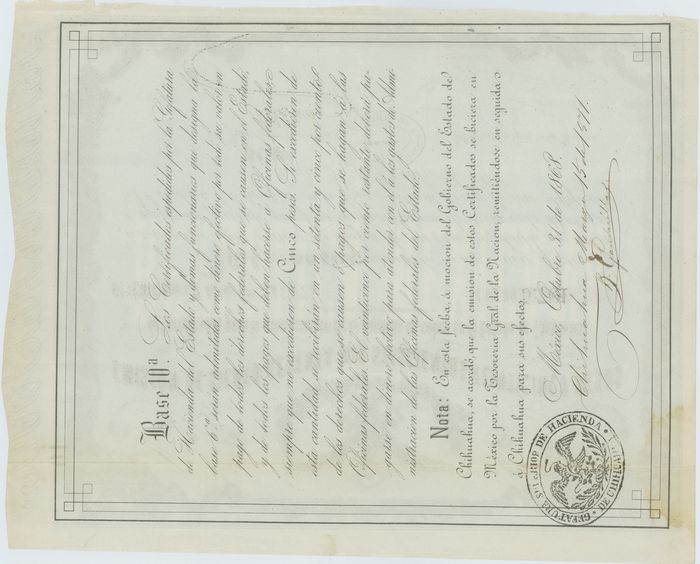 Base 10ª. Los Certificados espedidos por la Gefatura
de Hacienda del Estado y demas funcionarios que designa la
base 6ª serán admitidos como dinero efectivo por todo su valor en
pago de todos los derechos federales que se causen en el Estado,
y de los pagos que deban hacerse á Oficinas federales
siempre que no excedieren de Cinco pesos. Si excedieren de
esta cantidad, se recibirán en un setenta y cinco por ciento
de los derechos que se causen ó pagos que se hagan á las
Oficinas federales. El veinticinco por ciento restante deberá pa-
garse en dinero efectivo para atender en él á los gastos de Admi-
nistracion de las Oficinas federales del Estado.
Nota: En esta fecha, á mocion del Gobierno del Estado de
Chihuahua, se acordó, que la emision de estos Certificados se hiciera en
México por la Tesorería Gral de la Nacion, remitiéndose en seguida
á Chihuahua para sus efectos.
México, Octubre 31 de 1868.
Chihuahua Mayo 15 de 1871.
GEFATURA SUPERIOR DE HACIENDA
DE CHIHUAHUA